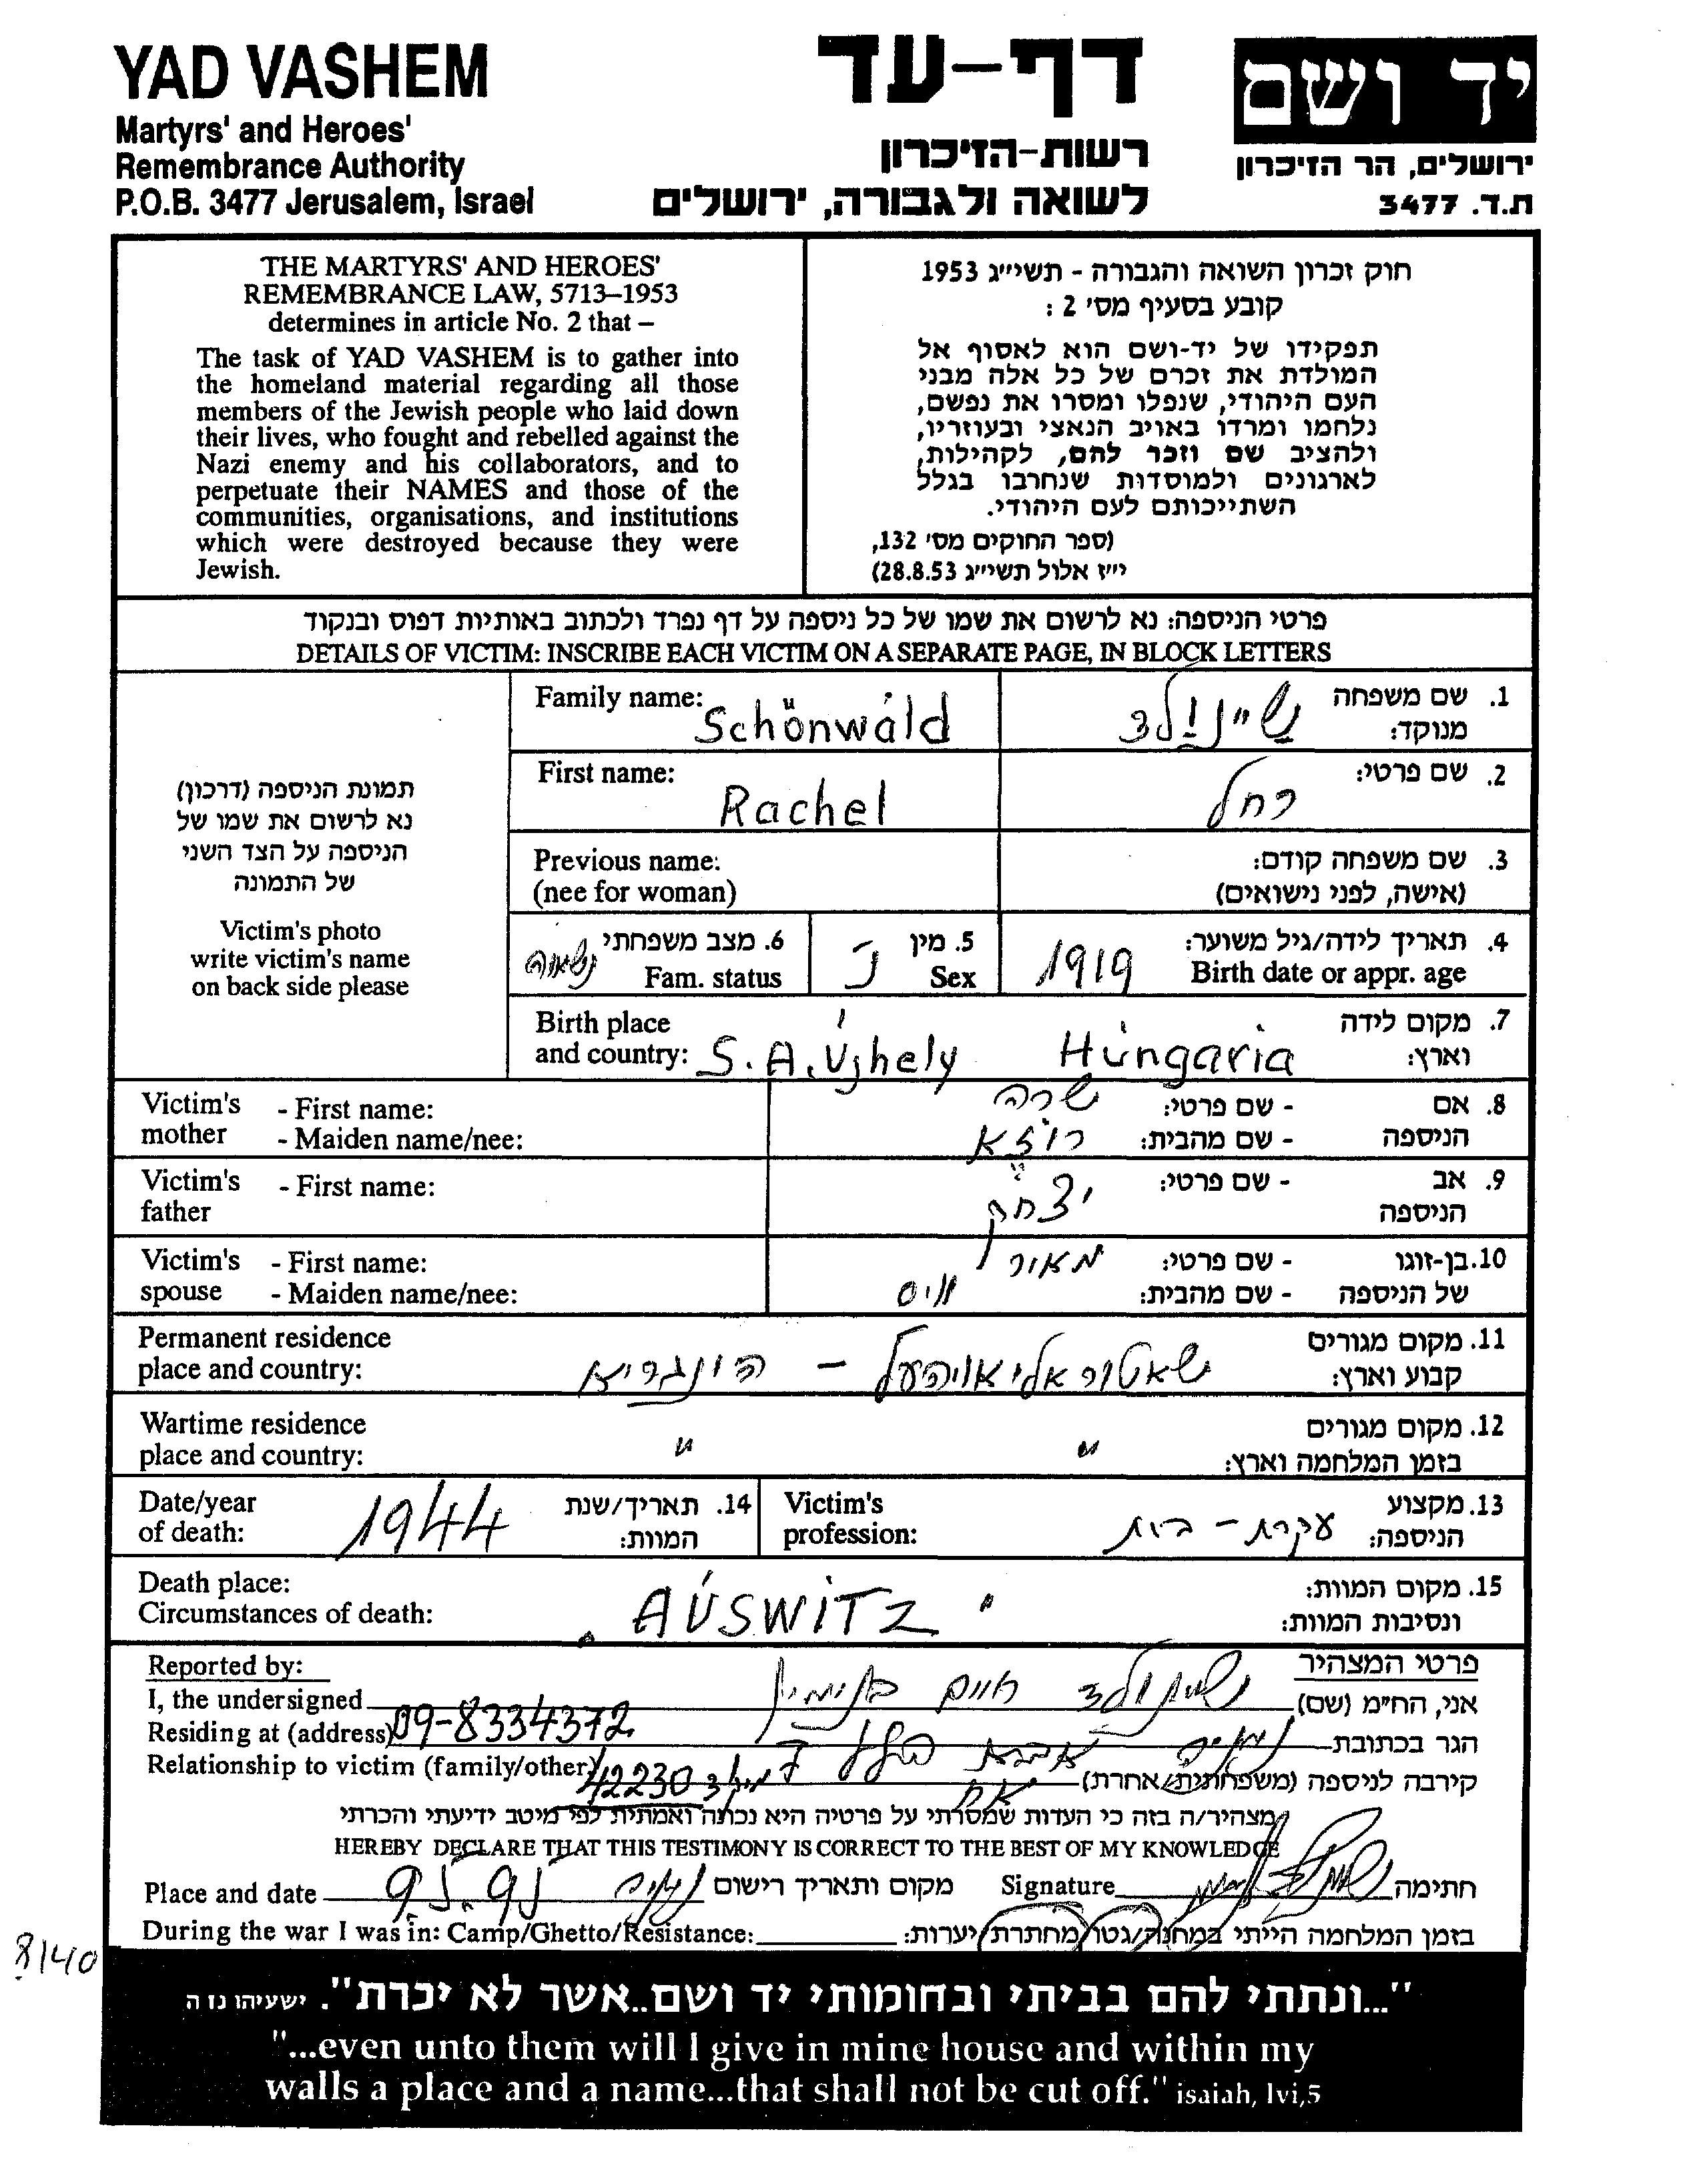 YAD VASHEM
Martyrs' and Heroes'
Remembrance Authority
P.O.B. 3477 Jerusalem, Israel
דף-עד
רשות-הזיכרון
לשואה ולגבורה, ירושלים
יד ושם
ירושלים, הר הזיכרון
ת.ד. 3477
THE MARTYRS' AND HEROES'
REMEMBRANCE LAW, 5713–1953
determines in article No. 2 that –
The task of YAD VASHEM is to gather into
the homeland material regarding all those
members of the Jewish people who laid down
their lives, who fought and rebelled against the
Nazi enemy and his collaborators, and to
perpetuate their NAMES and those of the
communities, organisations, and institutions
which were destroyed because they were
Jewish.
חוק זכרון השואה והגבורה - תשי״ג 1953
קובע בסעיף מס׳ 2 :
תפקידו של יד-ושם הוא לאסוף אל
המולדת את זכרם של כל אלה מבני
העם היהודי, שנפלו ומסרו את נפשם,
נלחמו ומרדו באויב הנאצי ובעוזריו,
ולהציב שם וזכר להם, לקהילות,
לארגונים ולמוסדות שנחרבו בגלל
השתייכותם לעם היהודי.
(ספר החוקים מס׳ 132,
י״ז אלול תשי״ג 28.8.53)
פרטי הניספה: נא לרשום את שמו של כל ניספה על דף נפרד ולכתוב באותיות דפוס ובנקוד
DETAILS OF VICTIM: INSCRIBE EACH VICTIM ON A SEPARATE PAGE, IN BLOCK LETTERS
תמונת הניספה (דרכון)
נא לרשום את שמו של
הניספה על הצד השני
של התמונה
Victim's photo
write victim's name
on back side please
Family name: Schönwald
1. שם משפחה מנוקד: שיינולד
First name: Rachel
2. שם פרטי: רחל
Previous name:
(nee for woman)
3. שם משפחה קודם:
(אישה, לפני נישואים)
4. תאריך לידה/גיל משוער: 1919
Birth date or appr. age
5. מין נ
Sex
6. מצב משפחתי נשואה
Fam. status
Birth place
and country: S.A.Újhely Hungaria
7. מקום לידה
וארץ:
Victim's mother - First name:
- Maiden name/nee:
8. אם הניספה - שם פרטי: שרה
- שם מהבית: רוזא
Victim's father - First name:
9. אב הניספה - שם פרטי: יצחק
Victim's spouse - First name:
- Maiden name/nee:
10. בן-זוגו של הניספה - שם פרטי: מאיר
- שם מהבית: ווייס
Permanent residence
place and country:
11. מקום מגורים
קבוע וארץ: שאטור אליאויהעל - הונגריא
Wartime residence
place and country:
12. מקום מגורים
בזמן המלחמה וארץ: " "
13. מקצוע
הניספה: עקרת-בית
Victim's
profession:
14. תאריך/שנת
המוות: 1944
Date/year
of death:
Death place:
Circumstances of death: AUSWITZ
15. מקום המוות:
ונסיבות המוות:
Reported by:
פרטי המצהיר
I, the undersigned
אני, הח״מ (שם) שיינולד חיים בנימין
Residing at (address) 09-8334372
הגר בכתובת נתניה אבא הלל 7
Relationship to victim (family/other) 42230
קירבה לניספה (משפחתית/אחרת) אח
מצהיר/ה בזה כי העדות שמסרתי על פרטיה היא נכונה ואמתית לפי מיטב ידיעתי והכרתי
HEREBY DECLARE THAT THIS TESTIMONY IS CORRECT TO THE BEST OF MY KNOWLEDGE
Place and date
מקום ותאריך רישום נתניה
Signature
חתימה
During the war I was in: Camp/Ghetto/Resistance:
בזמן המלחמה הייתי במחנה/גטו/מחתרת/יערות:
8140
"...ונתתי להם בביתי ובחומותי יד ושם..אשר לא יכרת". ישעיהו נו ה
"...even unto them will I give in mine house and within my
walls a place and a name...that shall not be cut off." isaiah, lvi,5